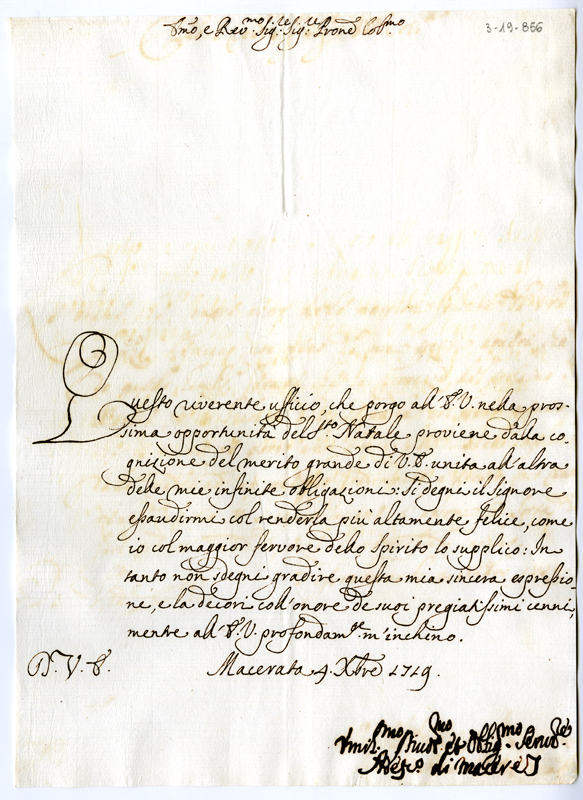 Emo, e Revmo Sigre Sigre Prone Colmo
3-19-856
Questo riverente ufficio, che porgo all' E.V. nella pros-
sima opportunità del Sto Natale proviene dalla co-
gnizione del merito grande di V.E. unita all'altra
delle mie infinite obligazioni. Si degni il Signore
essaudirmi col renderla più altamente felice, come
io col maggior fervore dello spirito lo supplico: In
tanto non sdegni gradire questa mia sincera espressio-
ne, e la decori coll'onore de suoi pregiatissimi cenni,
mentre all' E.V. profondamte m'inchino.
D. V. E. Macerata 9. Xbre 1719.
Umilmo Divotmo et Obligmo Servre
Vesco di Macera